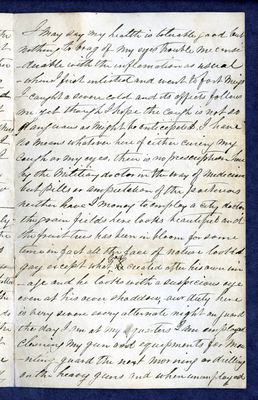 I may say my health is tolerably good but
nothing to brag of my eyes trouble me consi
derable with the inflamation as usual
when I first inlisted and went to fort
I caught a severe cold and its affects follows
me yet though I hope the cough is not as
dangerous as might be anticepated. I have
no means whatever here of either curing my
cough or my eyes, there is no prescription here
by the Military doctor in the way of medicine
but Pills or amputation of the
neither have I money to employ a city doctor
the corn fields here looks beautiful and
the fruit trees has been in bloom for some
time in fact all the face of nature looks
gay except what God created after his own im
age and he looks with a suspicious eye
even at his own shaddow, our duty here
is very severe every alternate night on guard
the day I am at my quarters I am employed
cleaning my gun and equipments for Mou
nting guard the next morning or drilling
on the heavy guns and when unemployed